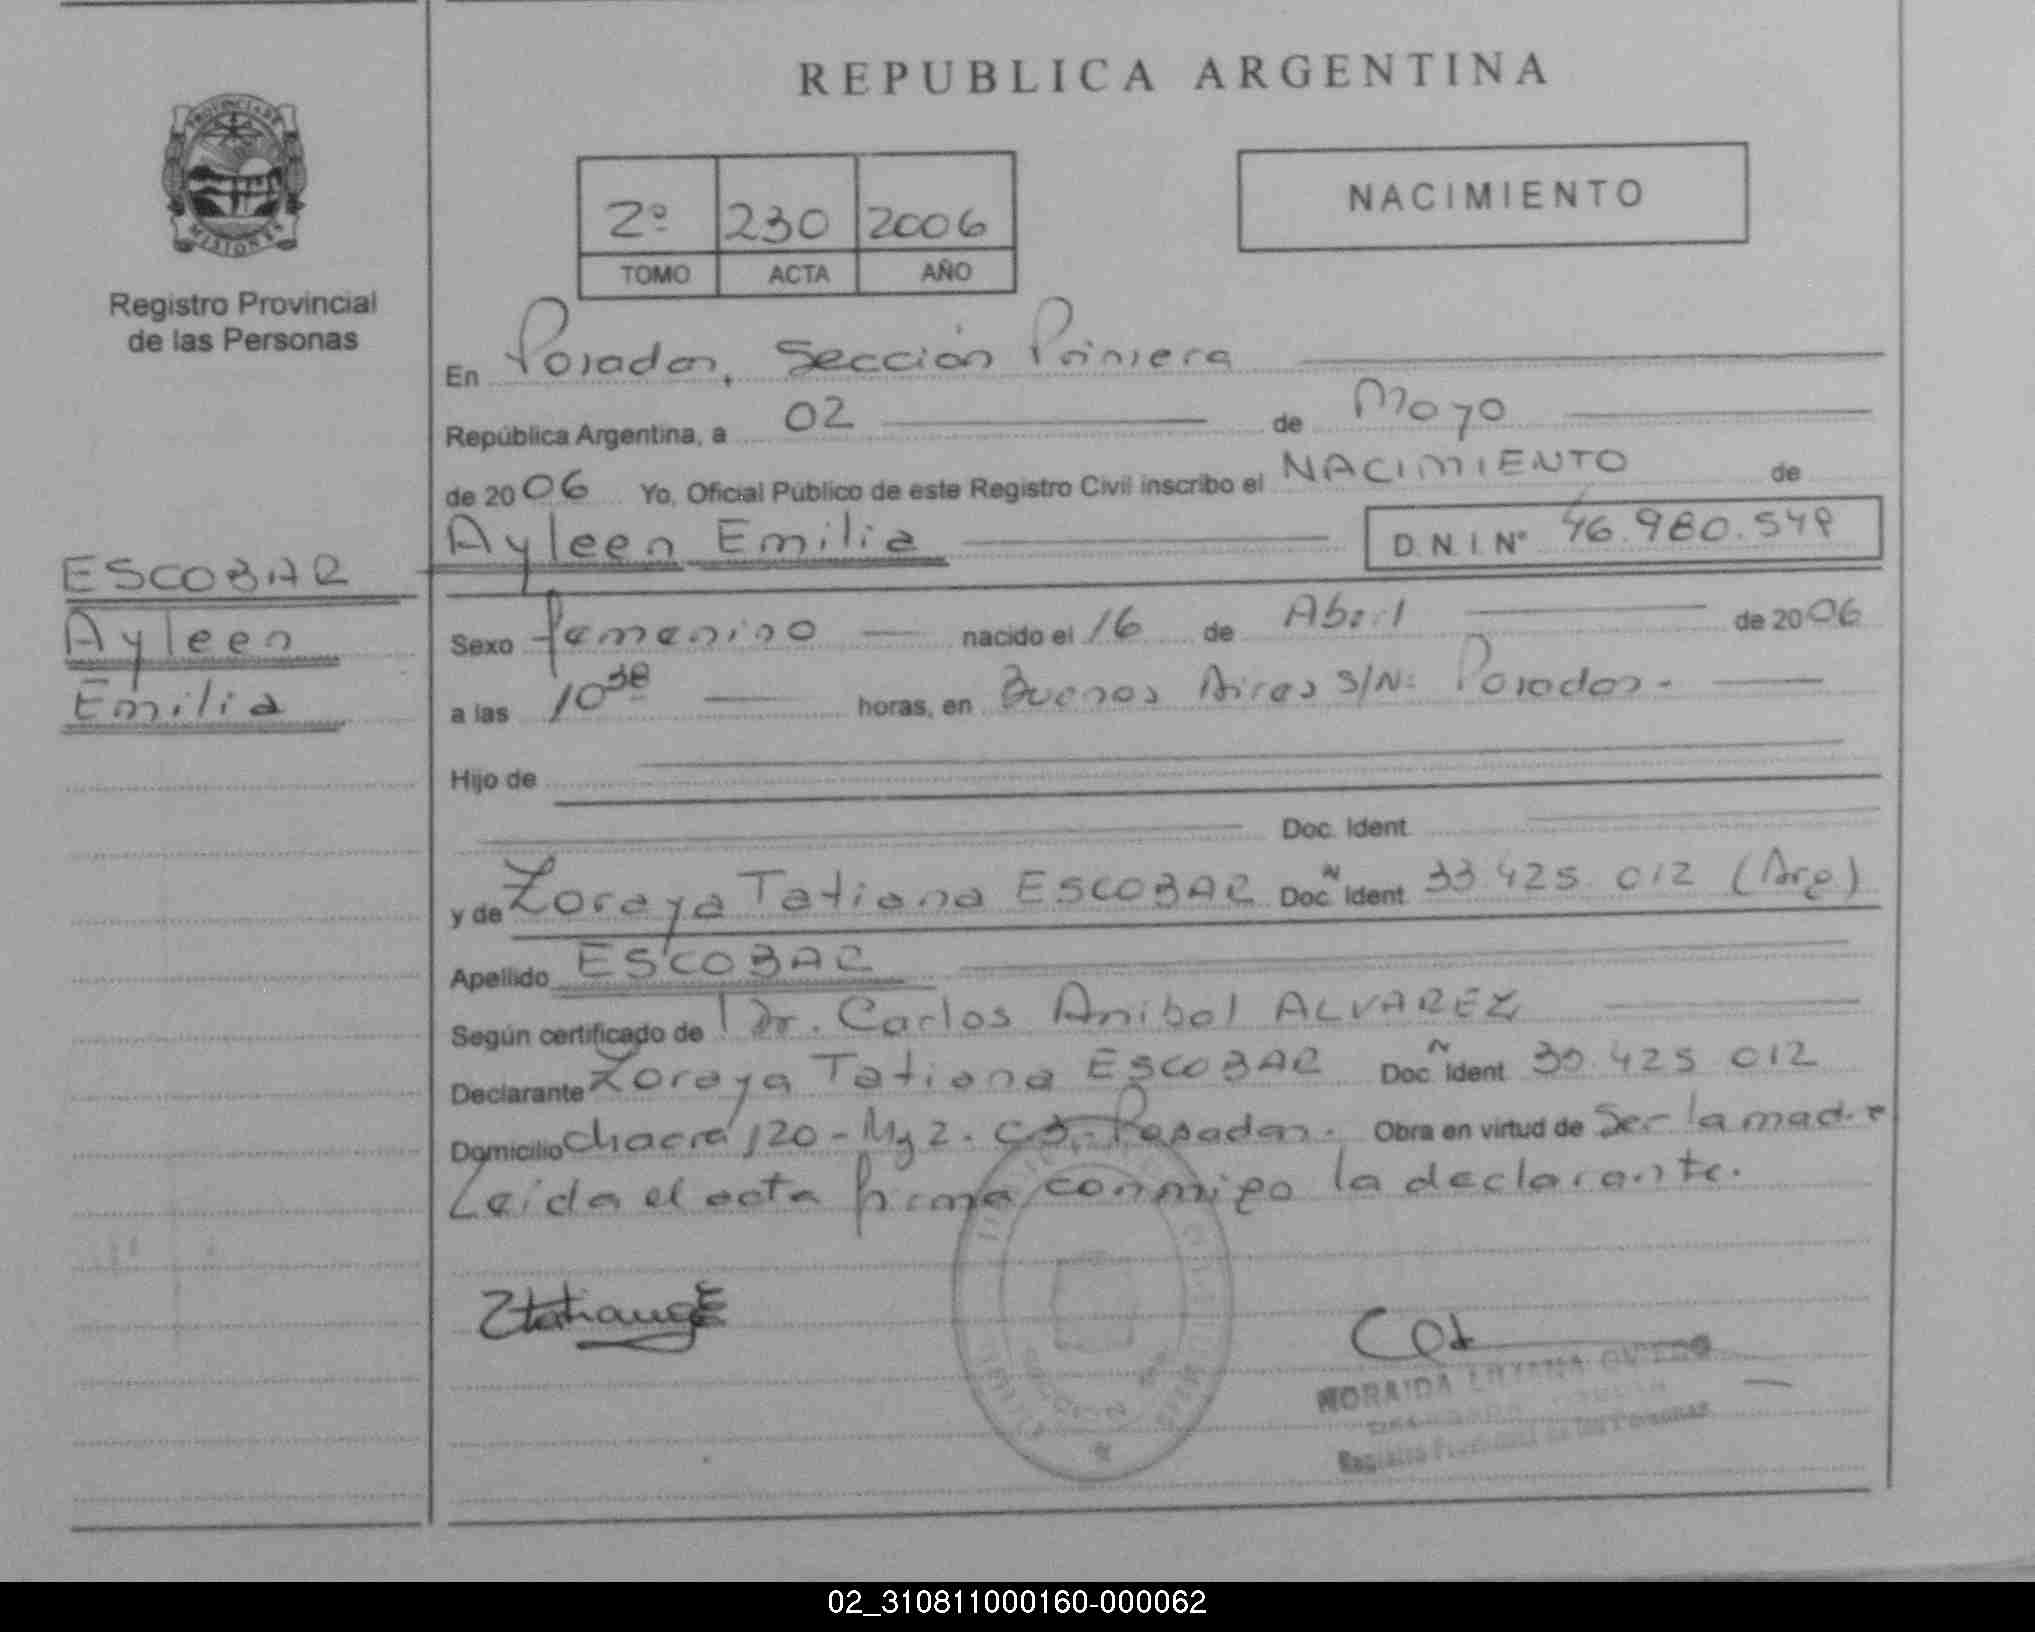 REPUBLICA ARGENTINA
PROVINCIA DE
MISIONES
Registro Provincial
de las Personas
NACIMIENTO
2º 230 2006
TOMO ACTA AÑO
En Posadas, Sección Primera
República Argentina, a 02 de Mayo
de 2006 Yo, Oficial Público de este Registro Civil inscribo el NACIMIENTO de
Ayleen Emilia D.N.I. Nº 46.980.549
ESCOBAR
Ayleen
Emilia
Sexo femenino nacido el 16 de Abril de 2006
a las 10 38 horas, en Buenos Aires S/Nº Posadas.
Hijo de
Doc. Ident.
y de Zoraya Tatiana ESCOBAR Doc. Ident. N 33.425.012 (Arg)
Apellido ESCOBAR
Según certificado de Dr. Carlos Anibal ALVAREZ
Declarante Zoraya Tatiana ESCOBAR Doc. Ident. N 33.425.012
Domicilio Chacra 120 - Mz 2. C3. Posadas. Obra en virtud de Ser la madre
Leída el acta firma conmigo la declarante.
ZtatianaE
SECCION
MORAIDA OVIEDO
Registro Provincial de las Personas
02_310811000160-000062